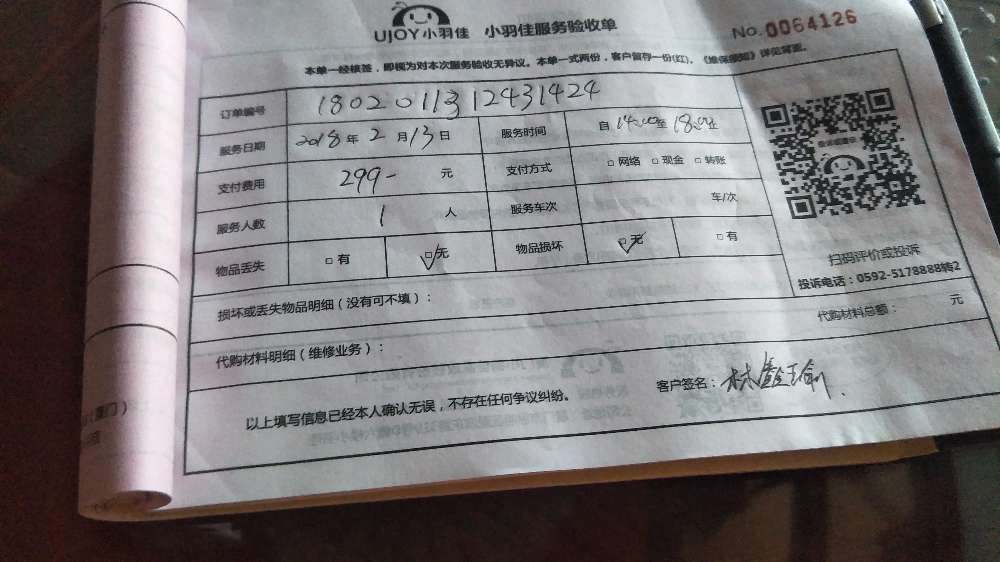 UJOY小羽佳 小羽佳服务验收单 No.0064126
本单一经核签，即视为对本次服务验收无异议。本单一式两份，客户留存一份(红)，《维保须知》详见背面。
订单编号 1802011312431424
服务日期 2018年2月13日 服务时间 自14:00至18:00止
支付费用 299- 元 支付方式 □网络 □现金 □转账
服务人数 1 人 服务车次 车/次
物品丢失 □有 □无 物品损坏 □无 □有
扫码评价或投诉
投诉电话：0592-5178888转2
损坏或丢失物品明细（没有可不填）：
代购材料明细（维修业务）： 代购材料总额： 元
以上填写信息已经本人确认无误，不存在任何争议纠纷。 客户签名：